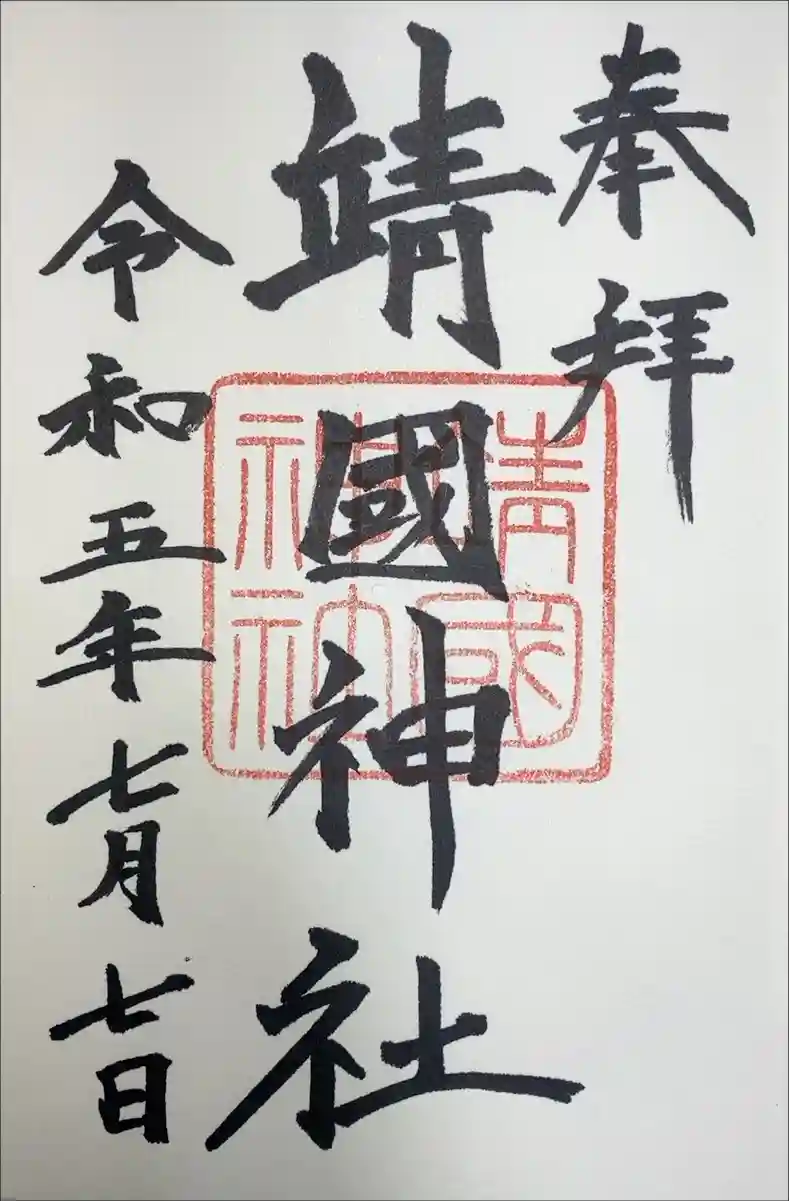 奉拝
靖國神社
靖国神社
令和五年七月七日